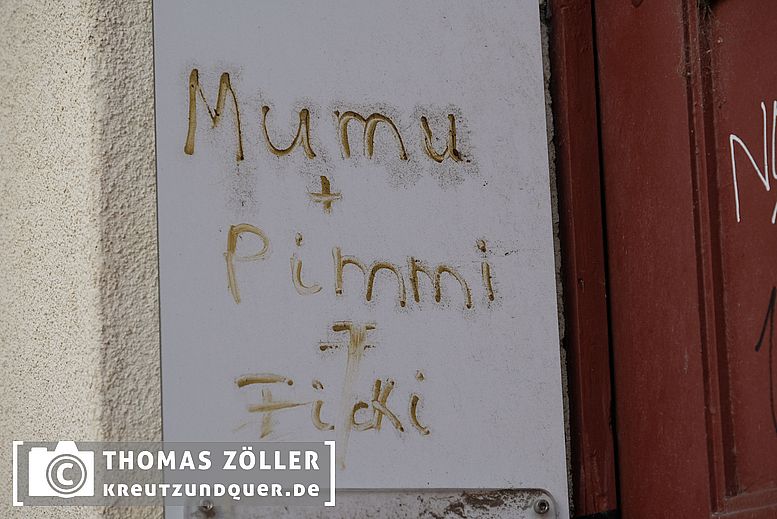 Mumu
+
Pimmi
Ficki
N
© THOMAS ZÖLLER
KREUTZUNDQUER.DE